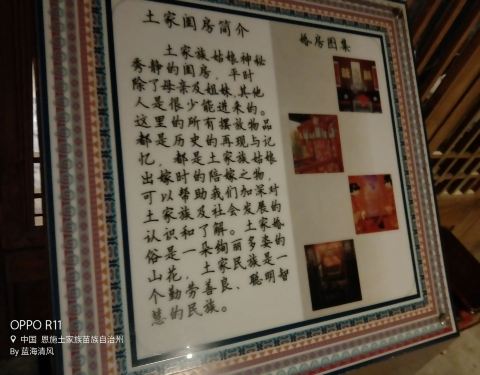 土家闺房简介
土家族姑娘神秘
秀静的闺房，平时
除了母亲及姐妹，其他
人是很少能进来的。
这里的所有摆放物品
都是历史的再现与记
忆，都是土家族姑娘
出嫁时的陪嫁之物，
可以帮助我们加深对
土家族及社会发展的
认识和了解。土家婚
俗是一朵绚丽多姿的
山花，土家民族是一
个勤劳善良、聪明智
慧的民族。
婚房图集
OPPO R11
中国 恩施土家族苗族自治州
By 蓝海清风